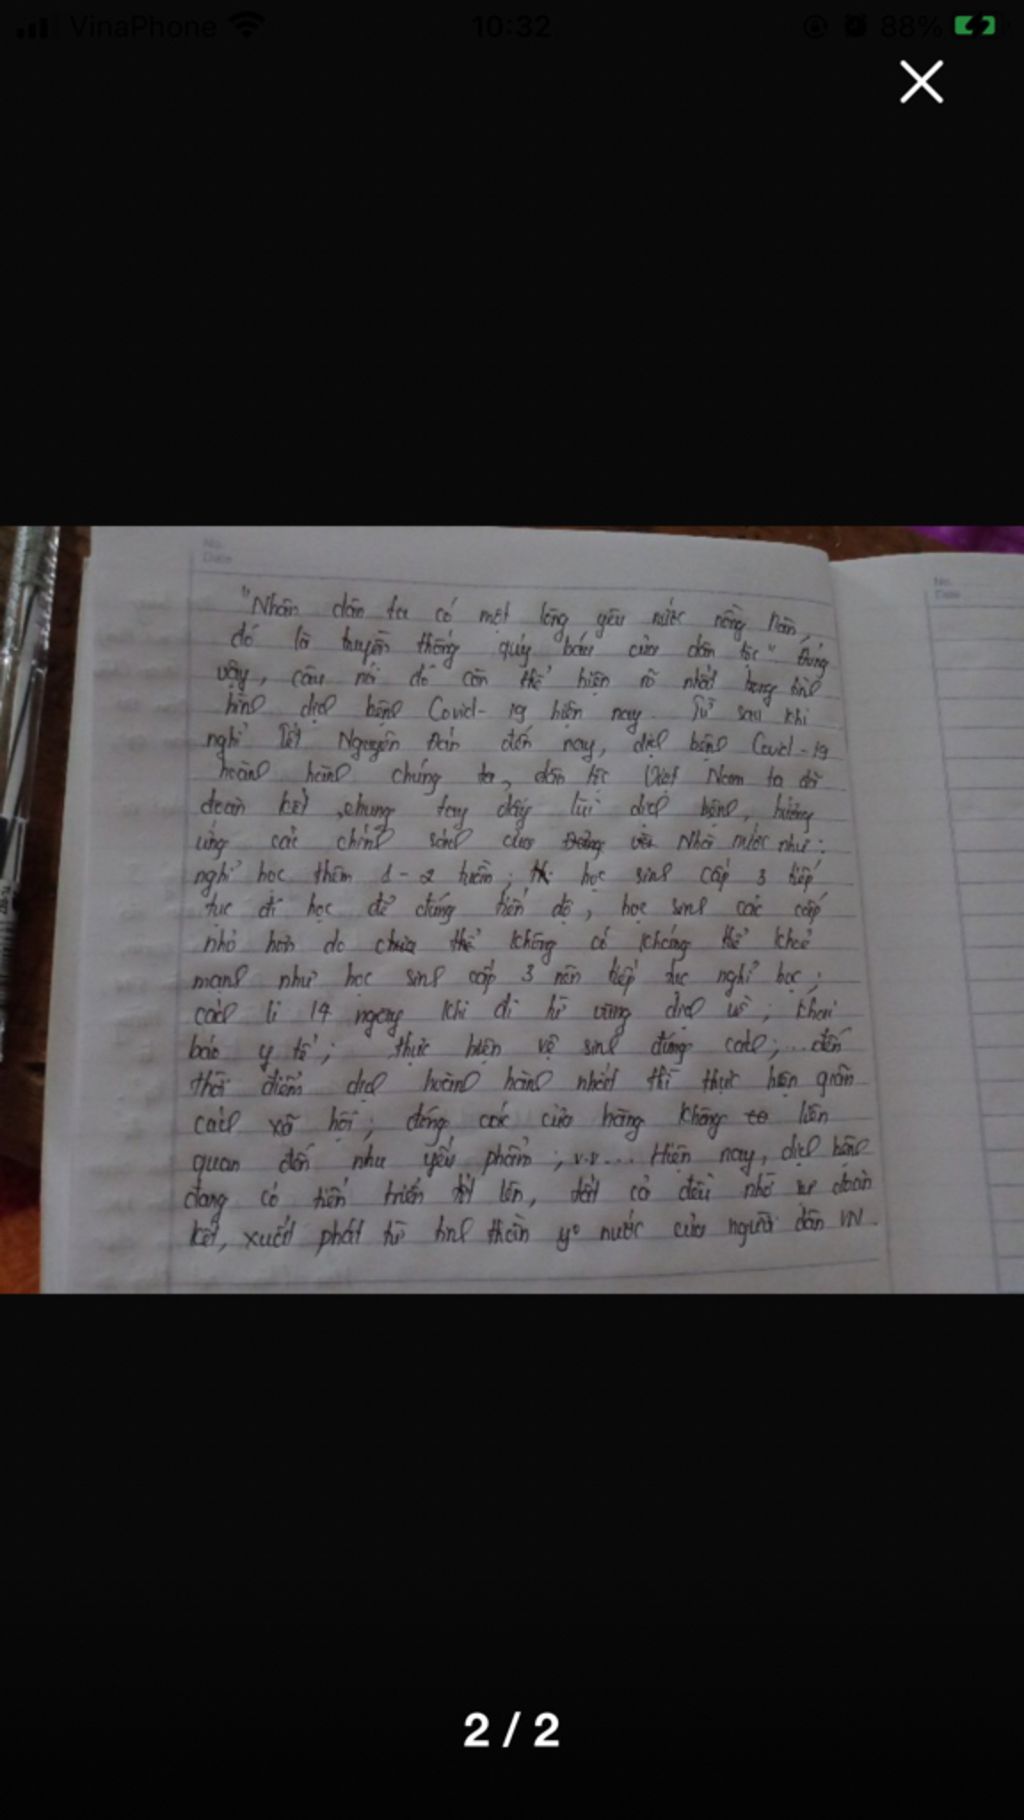 VinaPhone 10:32 88%
No.
Date
No.
Date
"Nhân dân ta có một lòng yêu nước nồng nàn,
đó là truyền thống quý báu của dân tộc" Đúng
vậy, câu nói đó còn thể hiện rõ nhất trong tình
hình dịch bệnh Covid-19 hiện nay. Từ sau khi
nghỉ Tết Nguyên Đán đến nay, dịch bệnh Covid-19
hoành hành chúng ta, dân tộc Việt Nam ta đã
đoàn kết, chung tay đẩy lùi dịch bệnh, hưởng
ứng các chính sách của Đảng và Nhà nước như:
nghỉ học thêm 1-2 tuần; học sinh cấp 3 tiếp
tục đi học để đúng tiến độ, học sinh các cấp
nhỏ hơn do chưa thể không có kháng thể khoẻ
mạnh như học sinh cấp 3 nên tiếp tục nghỉ học;
cách li 14 ngày khi đi từ vùng dịch về; khai
báo y tế; thực hiện vệ sinh đúng cách;... đến
thời điểm dịch hoành hành nhất thì thực hiện giãn
cách xã hội; đóng các cửa hàng không liên
quan đến nhu yếu phẩm; v.v... Hiện nay, dịch bệnh
đang có tiến triển tốt lên, tất cả đều nhờ sự đoàn
kết, xuất phát từ tinh thần yº nước của người dân VN
2 / 2